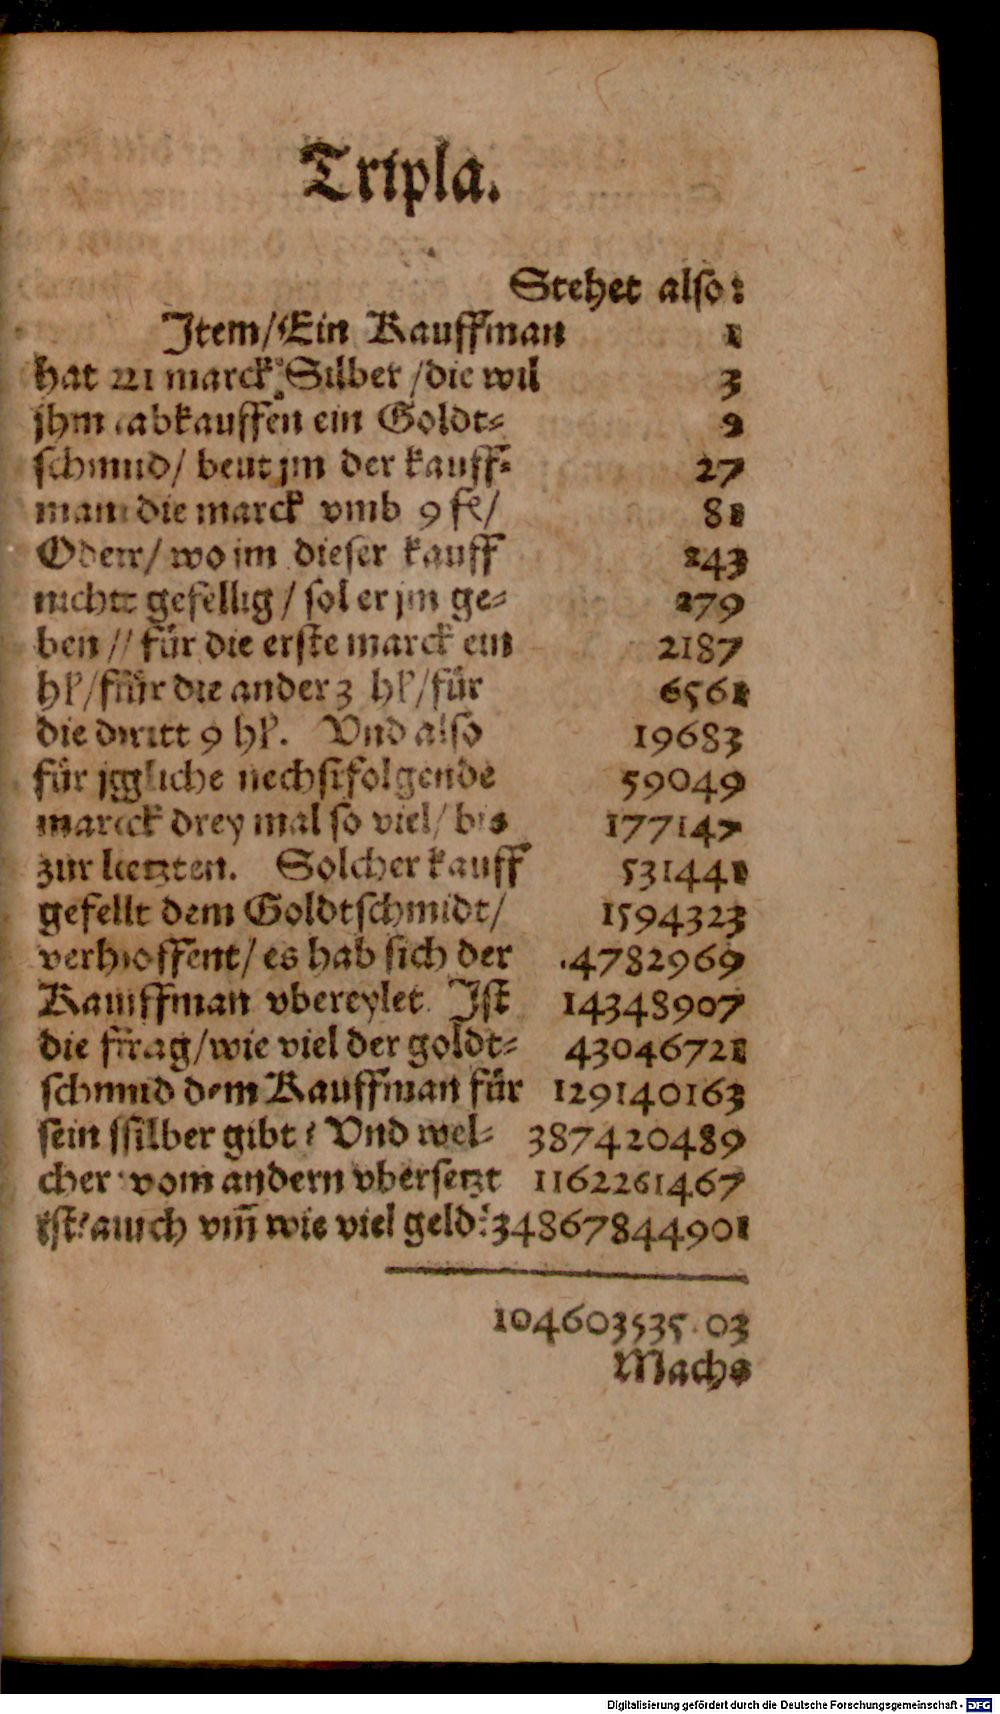 Tripla.
Stehet also:
Item/Ein Kauffman 1
hat 21 marck Silber/die wil 3
jhm abkauffen ein Goldt- 9
schmid/ beut jm der kauff- 27
man die marck vmb 9 fl/ 81
Oder/ wo jm dieser kauff 243
nicht gefellig/ sol er jm ge- 279
ben/ für die erste marck ein 2187
hl/für die ander 3 hl/für 6561
die dritt 9 hl. Vnd also 19683
für jgliche nechstfolgende 59049
marck drey mal so viel/ bis 177147
zur letzten. Solcher kauff 531441
gefellt dem Goldtschmidt/ 1594323
verhoffent/ es hab sich der 4782969
Kauffman vbereylet. Ist 14348907
die frag/wie viel der goldt- 43046721
schmid dem Kauffman für 129140163
sein silber gibt? Vnd wel- 387420489
cher vom andern vbersetzt 1162261467
ist? auch vm̃ wie viel geld? 34867844901
104603535 03
Machs
Digitalisierung gefördert durch die Deutsche Forschungsgemeinschaft - DFG